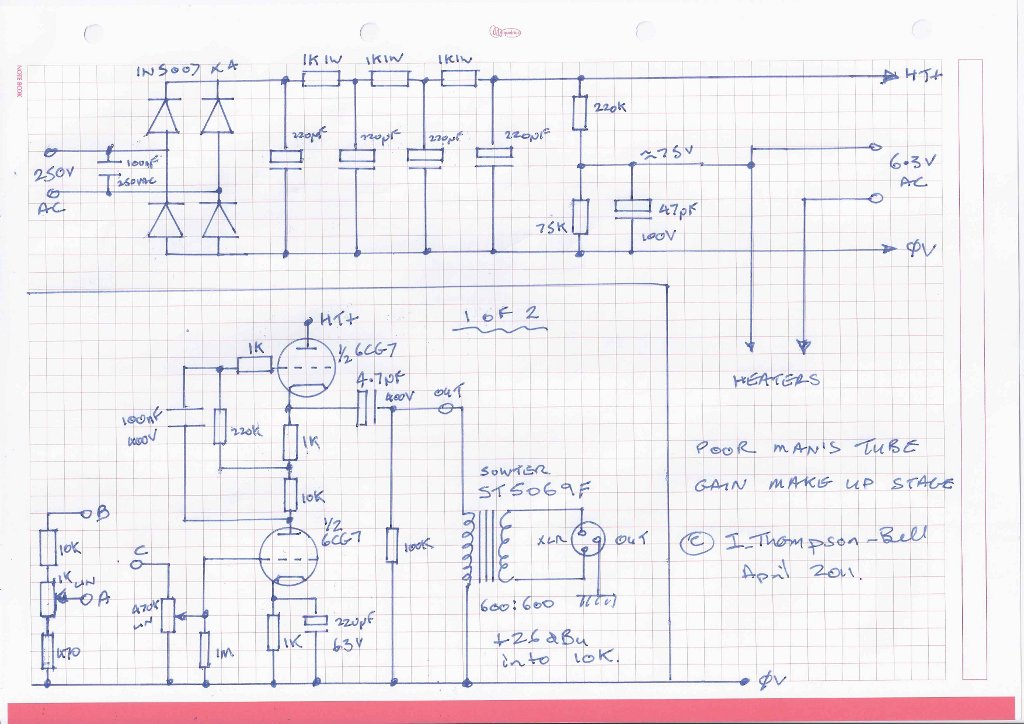 NOTE BOOK
IN5007 x4
1K1W
1K1W
1K1W
HT+
220µF
220µF
220µF
220µF
220K
250V
AC
100nF
250VAC
≈75V
6.3V
AC
75K
47µF
100V
ØV
HEATERS
1 OF 2
HT+
1K
½ 6CG7
4.7µF
400V
OUT
100nF
400V
220K
1K
10K
½
6CG7
B
10K
1K
LIN
A
470
C
470K
LIN
1M
1K
220µF
6.3V
100K
SOWTER
ST5069F
XLR
OUT
600:600
+26dBu
into 10K.
POOR MAN'S TUBE
GAIN MAKE UP STAGE
© I. Thompson-Bell
April 2011.
ØV